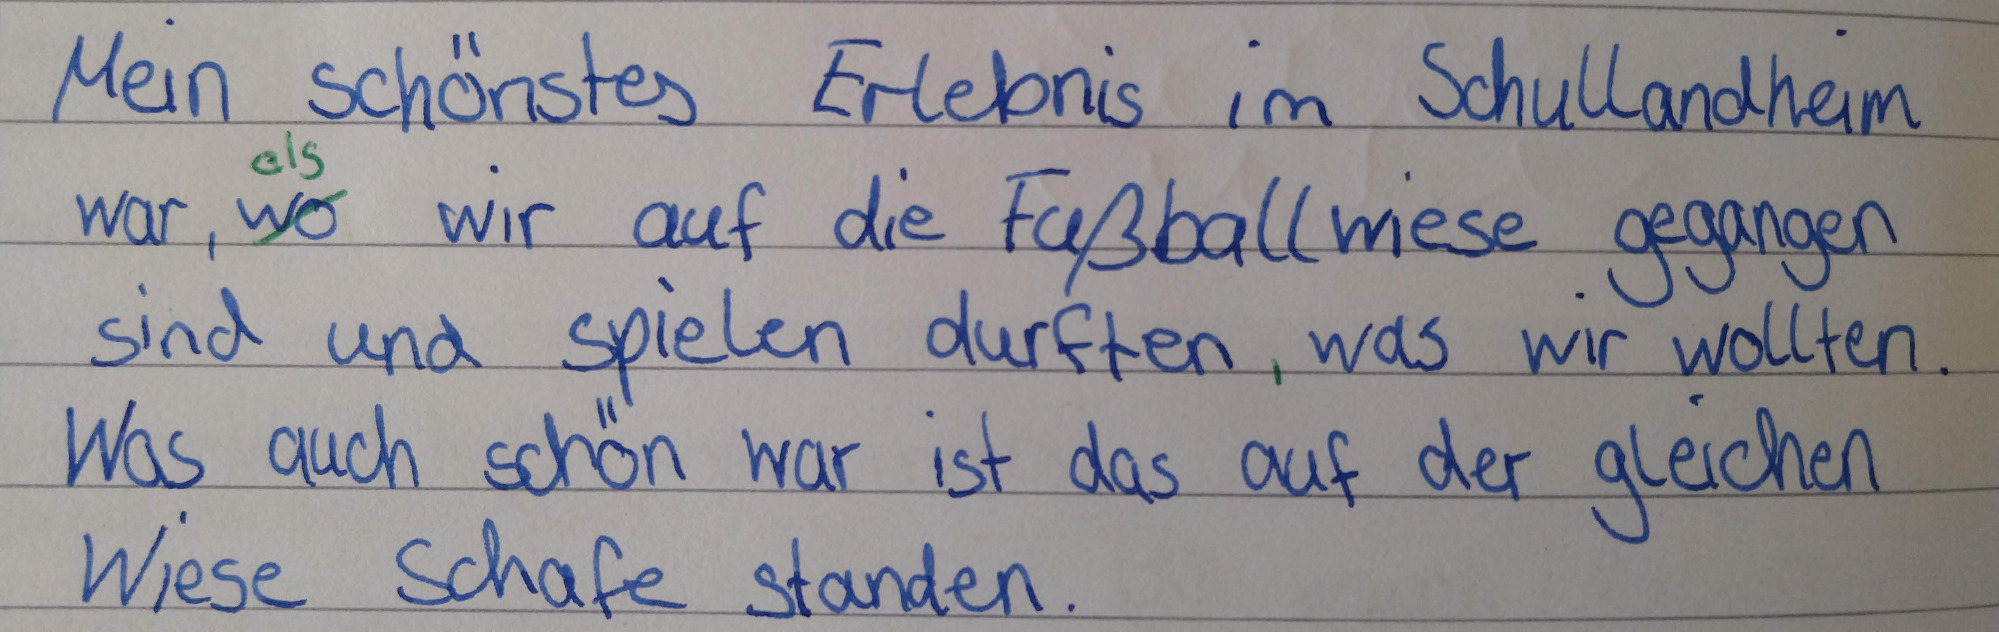 Mein schönstes Erlebnis im Schullandheim
als
war, wo wir auf die Fußballwiese gegangen
sind und spielen durften, was wir wollten.
Was auch schön war ist das auf der gleichen
Wiese Schafe standen.